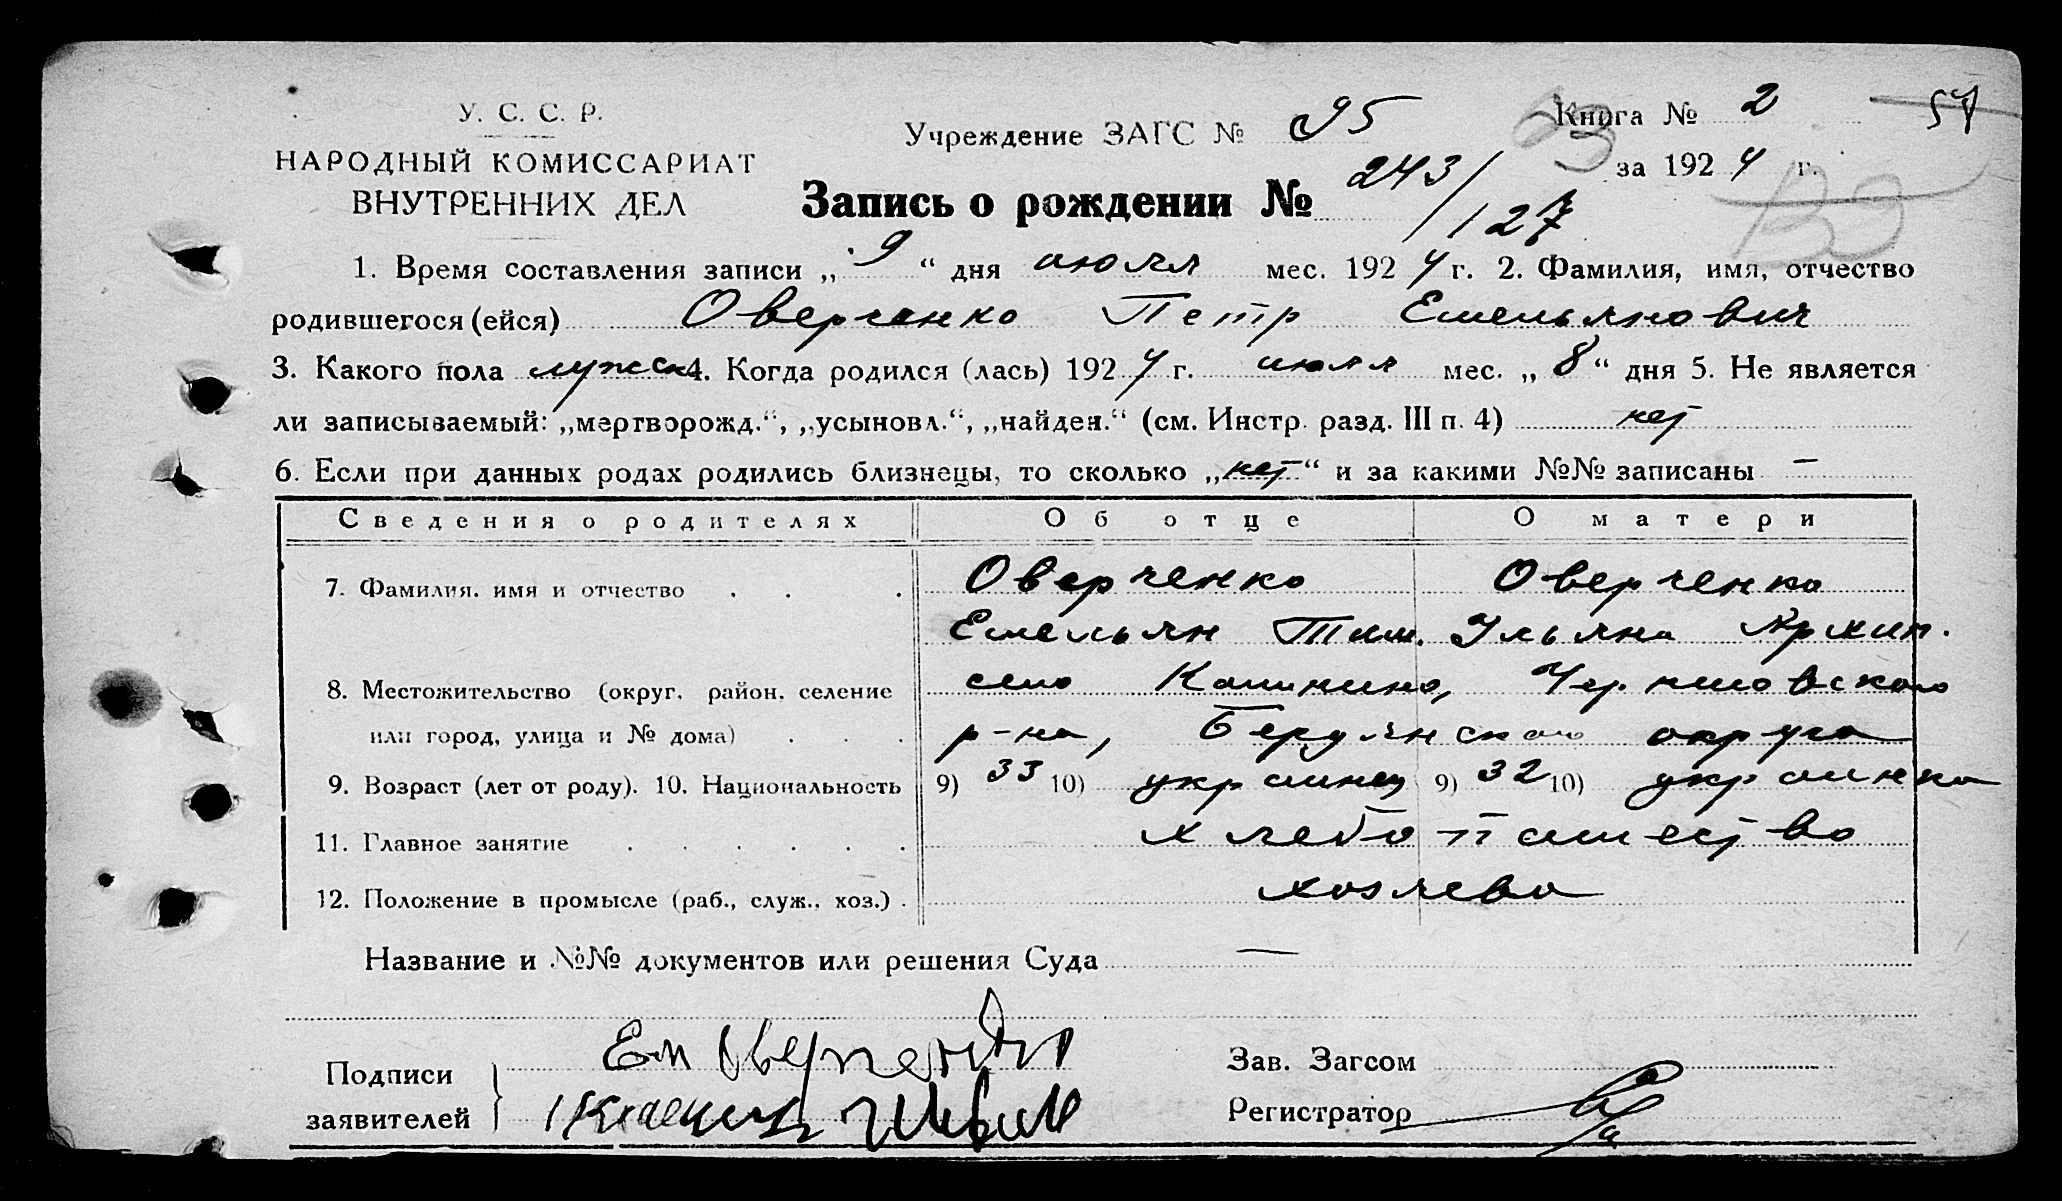 У. С. С. Р.
НАРОДНЫЙ КОМИССАРИАТ
ВНУТРЕННИХ ДЕЛ
Учреждение ЗАГС № 95
Книга № 2
57
за 1924 г.
Запись о рождении № 243/127
1. Время составления записи „9“ дня июля мес. 1924 г. 2. Фамилия, имя, отчество
родившегося (ейся) Оверченко Петр Емельянович
3. Какого пола мужск 4. Когда родился (лась) 1924 г. июля мес. „8“ дня 5. Не является
ли записываемый: „мертворожд.“, „усыновл.“, „найден.“ (см. Инстр. разд. III п. 4) нет
6. Если при данных родах родились близнецы, то сколько „нет“ и за какими №№ записаны —
Сведения о родителях Об отце О матери
7. Фамилия, имя и отчество Оверченко Оверченко
Емельян Тим. Ульяна Архип.
8. Местожительство (округ, район, селение село Калинино, Черниговского
или город, улица и № дома) р-на, Бердянского округа
9. Возраст (лет от роду). 10. Национальность 9) 33 10) украинец 9) 32 10) украинка
11. Главное занятие хлебопашество
12. Положение в промысле (раб., служ., хоз.) хозяева
Название и №№ документов или решения Суда —
Подписи
заявителей
Ем Оверченко
Зав. Загсом
Регистратор